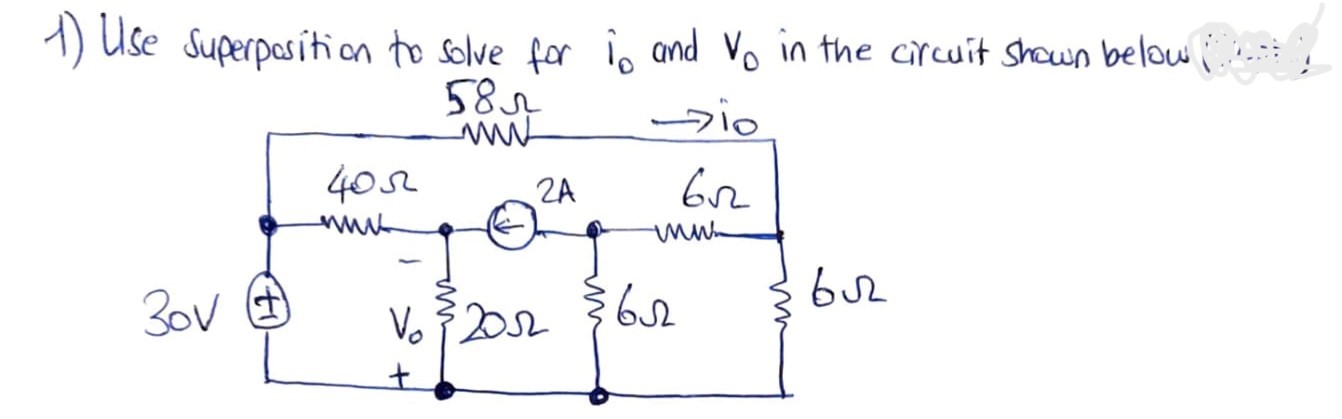 1) Use superposition to solve for i₀ and V₀ in the circuit shown below
58Ω
→i₀
40Ω
2A
6Ω
30V
+
−
V₀
+
20Ω
6Ω
6Ω